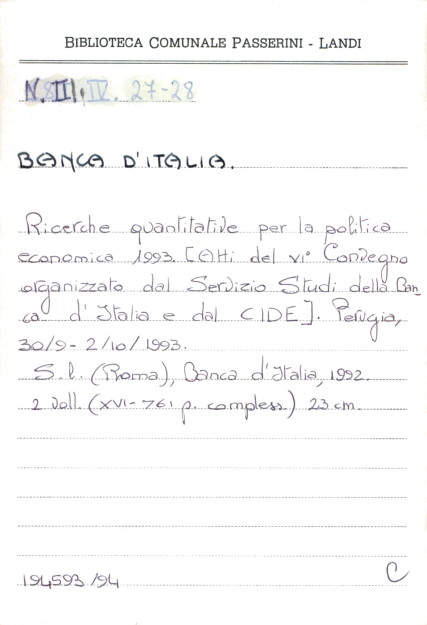 BIBLIOTECA COMUNALE PASSERINI - LANDI
N.III.IV. 27-28
BANCA D'ITALIA.
Ricerche quantitative per la politica
economica 1993. [Atti del VI° Convegno
organizzato dal Servizio Studi della Ban_
ca d'Italia e dal CIDE]. Perugia,
30/9 - 2/10/1993.
S.l. (Roma), Banca d'Italia, 1992.
2 Voll. (XVI-761 p. compless.) 23 cm.
194593/94 C